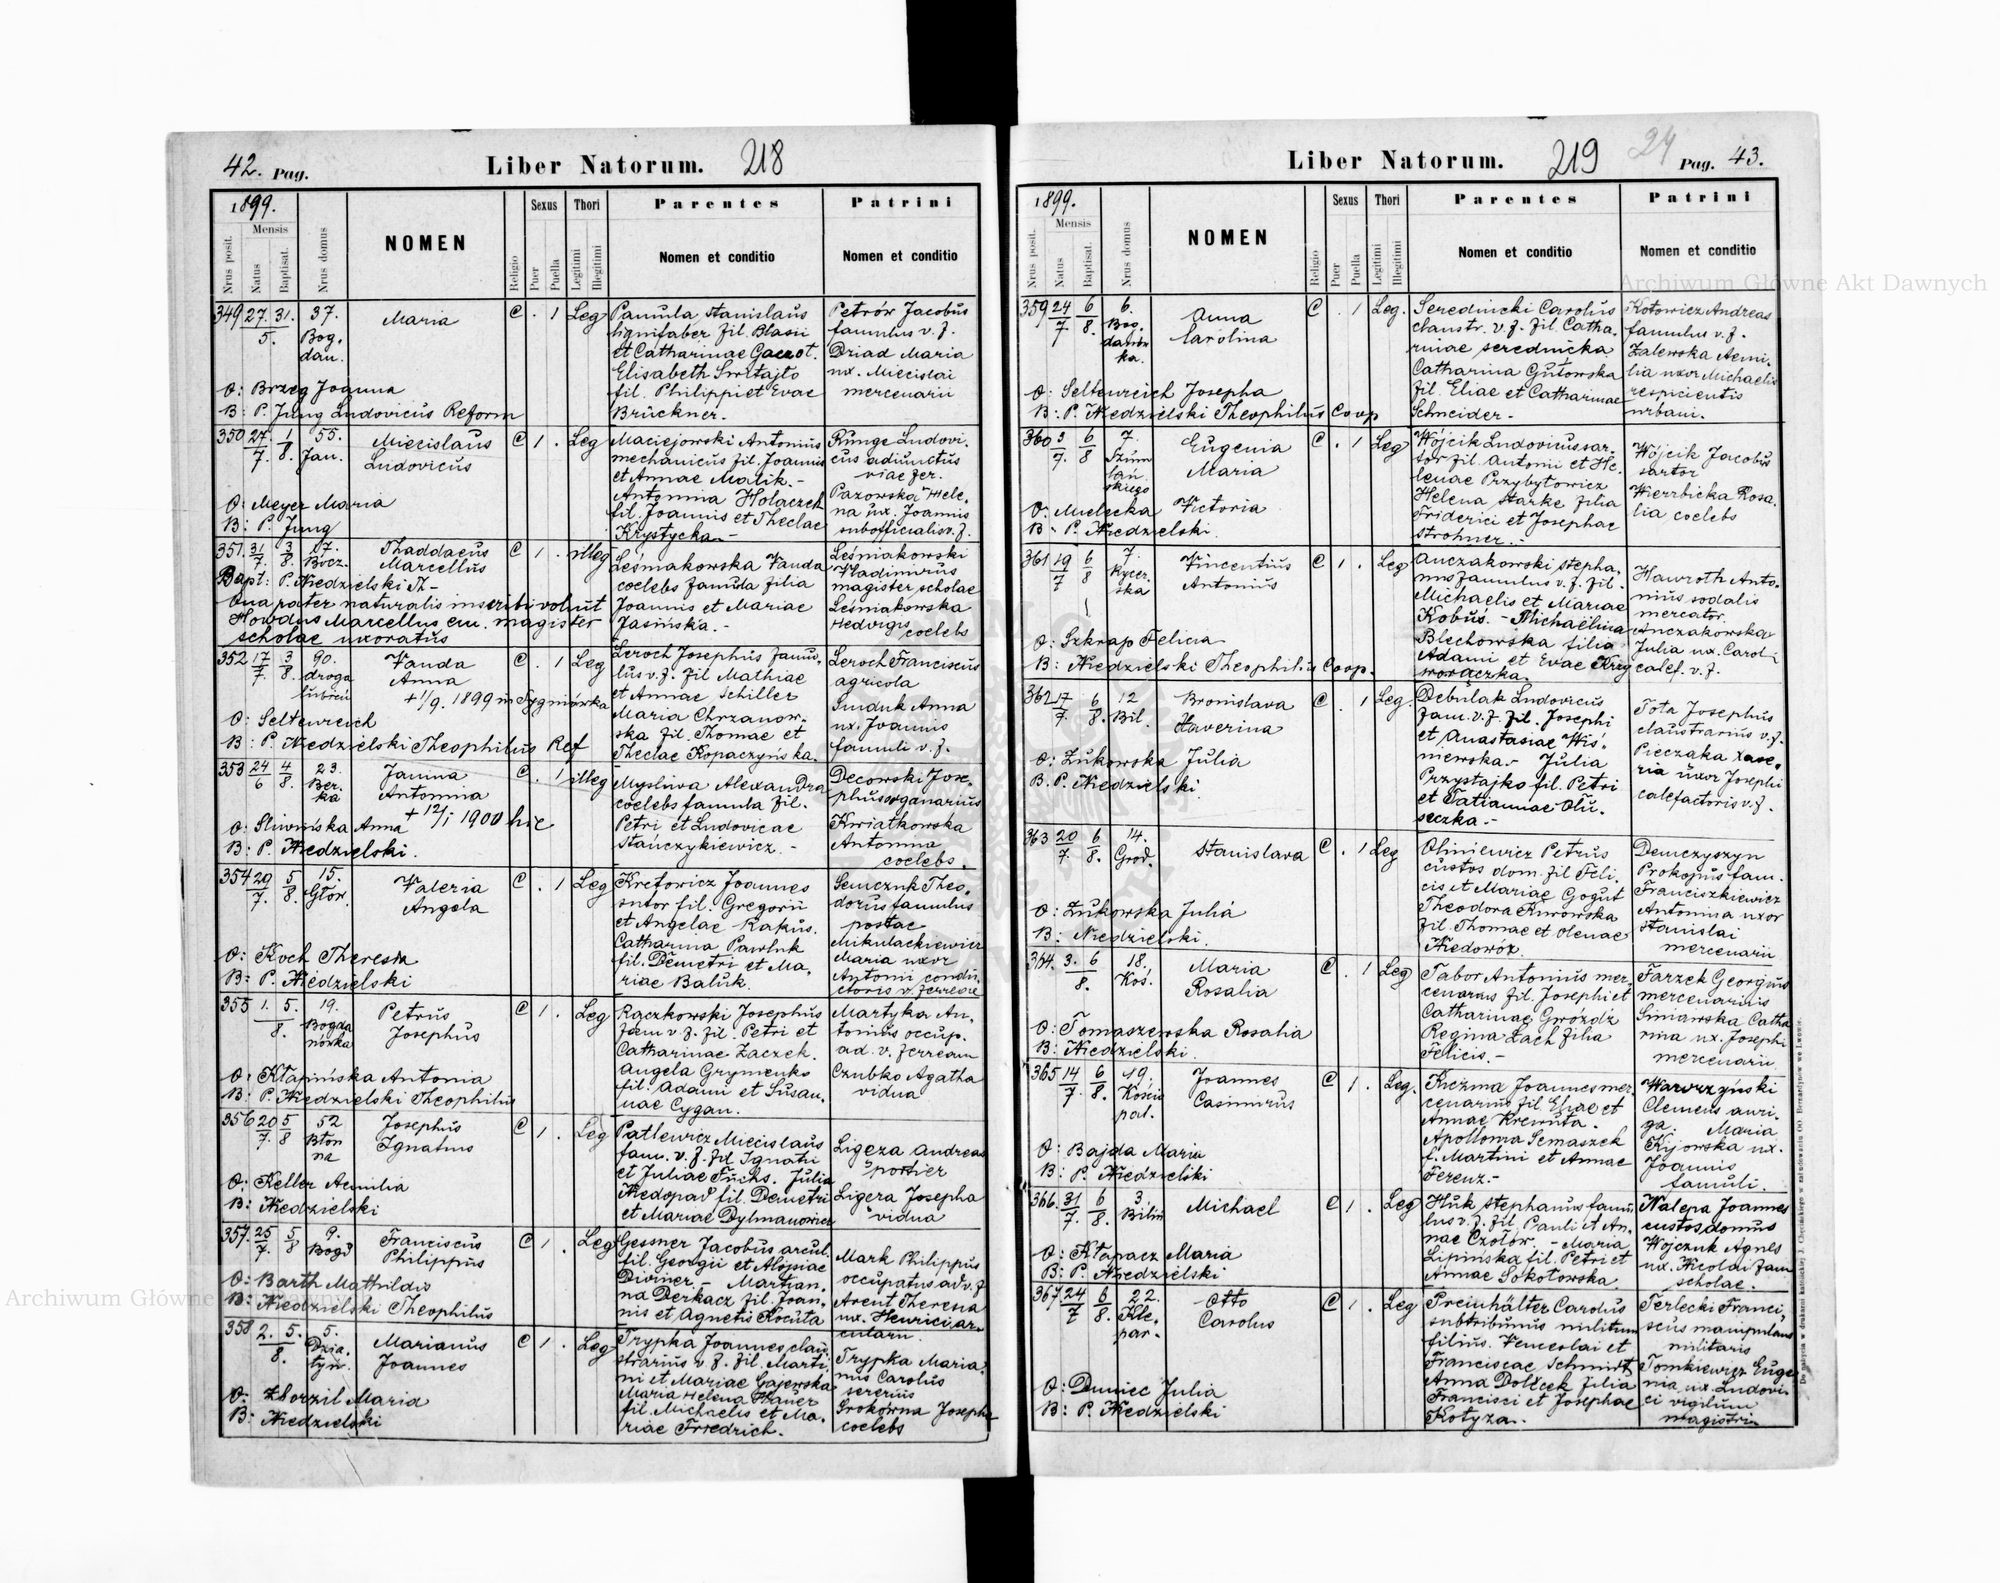 42. Pag.
Liber Natorum. 218
1899.
Mensis
Nrus posit.
Natus
Baptisat.
Nrus domus
NOMEN
Religio
Sexus
Puer
Puella
Thori
Legitimi
Illegitimi
Parentes
Nomen et conditio
Patrini
Nomen et conditio
349 27. 31. 5. 37. Bogdan.
Maria
C . 1 Leg
Pamuła Stanislaus
lignifaber fil. Blasii
et Catharinae
Elisabeth Switajło
fil. Philippi et Evae
Brückner.-
Petrów Jacobus
famulus v. f.
Dziad Maria
ux. Miecislai
mercenarii
O: Brzeg Joanna
B: P. Jung Ludovicus Reform
350 27/7. 1/8. 55. Jan.
Miecislaus
Ludovicus
C 1 . Leg
Maciejowski Antonius
mechanicus fil. Joannis
et Annae Malik.-
Antonina Holaczek
fil. Joannis et Theclae
Krystycka.-
Runge Ludovi-
cus adiunctus
viae fer.
Pazowska Hele-
na ux. Joannis
subofficialis v. f.
O: Meyer Maria
B: P. Jung
351. 31/7. 3/8. 17.
Thaddaeus
Marcellus
C 1 . illeg
Leśniakowska Vanda
coelebs famula filia
Joannis et Mariae
Jasińska.-
Leśniakowski
Vladimirus
magister scholae
Leśniakowska
Hedvigis
coelebs
Bapt: P. Niedzielski T.-
Qua pater naturalis inscribi voluit
Howdus Marcellus em. magister
scholae uxoratus
352 17/7. 3/8. 90. droga
Vanda
Anna
+ 1/9. 1899 in Sygniówka
C . 1 Leg
Leroch Josephus famu-
lus v. f. fil Mathiae
et Annae Schiller
Maria Chrzanow-
ska fil. Thomae et
Theclae Kopaczyńska.
Leroch Franciscus
agricola
Smduk Anna
ux. Joannis
famuli v. f.
O: Seltenreich
B: P. Niedzielski Theophilus Ref
353 24/6 4/8. 23. Ber-
ka
Janina
Antonina
+ 12/1 1900 hic
C . 1 illeg
Mysliwa Alexandra
coelebs famula fil.
Petri et Ludovicae
Stańczykiewicz.-
Decowski Jose-
phus organarius
Kwiatkowska
Antonina
coelebs.
O: Sliwińska Anna
B: P. Niedzielski.
354 20/7. 5/8. 15. Głor.
Valeria
Angela
C . 1 Leg
Kretowicz Joannes
sutor fil. Gregorii
et Angelae Kakus.
Catharina Pawluk
fil. Demetri et Ma-
riae Baluk.
Semczuk Theo-
dorus famulus
postae
Mikulackiewicz
Maria uxor
Antoni condu-
ctoris v. ferreae
O: Koch Theresia
B: P. Niedzielski
355 1. 5. 8. 19. Bogda
nówka
Petrus
Josephus
C 1 . Leg
Rączkowski Josephus
fam v. f. fil. Petri et
Catharinae Zaczek.
Angela Grymenko
fil. Adami et Susan-
nae Cygan.
Martyka An-
tonius occup.
ad. v. ferream
Czubko Agatha
vidua
O: Kłapińska Antonia
B: P. Niedzielski Theophilus
356 20/7. 5/8 52 Błon
na
Josephus
Ignatius
C 1 . Leg
Patlewicz Miecislaus
fam. v. f. fil Ignatii
et Juliae Fuchs. Julia
Niedopad fil. Demetri
et Mariae Dylmanowicz
Ligęza Andreas
portier
Ligęza Josepha
vidua
O: Keller Aemilia
B: Niedzielski
357. 25/7. 5/8 9. Bogd
Franciscus
Philippus
C 1 . Leg
Gessner Jacobus arcul.
fil. Georgii et Aloisiae
Diviner.- Martian-
na Derkacz fil. Joan-
nis et Agnetis Kocuta
Mark Philippus
occupatus ad v. f
Arent Theresa
ux. Henrici ar-
cularii.
O: Barth Mathildis
B: Niedzielski Theophilus
358 2. 5. 8. 5. Dzia-
tyń.
Marianus
Joannes
C 1 . Leg
Trypka Joannes claus-
trarius v. f. fil. Marti
ni et Mariae Gajewska
Maria Helena Hauer
fil. Michaelis et Ma-
riae Friedrich.
Trypka Maria-
nus Carolus
Srokówna Josepha
coelebs
O: Zborzil Maria
B: Niedzielski
Liber Natorum. 219 24 Pag. 43.
1899.
Mensis
Nrus posit.
Natus
Baptisat.
Nrus domus
NOMEN
Religio
Sexus
Puer
Puella
Thori
Legitimi
Illegitimi
Parentes
Nomen et conditio
Patrini
Nomen et conditio
359 24/7 6/8. 6. Bog-
danów-
ka.
Anna
Carolina
C . 1 Leg.
Serednicki Carolus
claustr. v. f. fil. Catha-
rinae Serednicka
Catharina Gutowska
fil. Eliae et Catharinae
Schneider.-
Kotowicz Andreas
famulus v. f.
Zalewska Aemi-
lia uxor Michaelis
respicientis
urbani.
O: Seltenreich Josepha
B: P. Niedzielski Theophilus Coop
360 3/7. 6/8 7.
Szum
lań
skiego
Eugenia
Maria
C . 1 Leg
Wójcik Ludovicus sar-
tor fil. Antonii et He-
lenae Przybytowicz
Helena Starke filia
Friderici et Josephae
Strohner.-
Wójcik Jacobus
sartor
Wierzbicka Rosa-
lia coelebs
O: Mielecka Victoria
B: P. Niedzielski.
361 19/7 6/8 7.
Rycer-
ska
Vincentius
Antonius
C 1 . Leg
Anczakowski Stepha-
nus famulus v. f. fil.
Michaelis et Mariae
Kobuś.- Michaelina
Blechowska filia
Adami et Evae Kry
woraczka.
Hawroth Anto-
nius sodalis
mercator.
Anczakowska
Julia ux. Caroli
calef. v. f.
O: Szkrap Felicia
B: Niedzielski Theophilus Coop.
362 17/7. 6/8. 12 Bil.
Bronislava
Xaverina
C . 1 Leg.
Debulak Ludovicus
fam. v. f. fil. Josephi
et Anastasiae Wiś-
niewska.- Julia
Przystajko fil. Petri
et Tatiannae Ołu-
seczka.-
Tota Josephus
claustrarius v. f.
Pieczaka Xave-
ria uxor Josephi
calefactoris v. f.
O: Żukowska Julia
B. P. Niedzielski.
363 20/7. 6/8. 14. Grod.
Stanislava
C . 1 Leg
Oliniewicz Petrus
custos dom. fil Feli-
cis et Mariae Gogut
Theodora Kurowska
fil. Thomae et Olenae
Niedowóz.
Demczyszyn
Prokopus fam.
Franciszkiewicz
Antonina uxor
Stanislai
mercenarii
O: Żukowska Julia
B: Niedzielski.
364. 3. 6. 8. 18. Koś.
Maria
Rosalia
C . 1 Leg
Tabor Antonius mer-
cenarius fil. Josephi et
Catharinae Gwóźdź
Regina Łach filia
Felicis.-
Farzek Georgius
mercenarius
Siniawska Catha
rina ux. Josephi
mercenarii
O: Tomaszewska Rosalia
B: Niedzielski.
365 14/7. 6/8. 19. Kościs
pol.
Joannes
Casimirus
C 1 . Leg.
Kiczma Joannes mer-
cenarius fil. Eliae et
Annae Krewnta.
Apollonia Semaszek
f. Martini et Annae
Ferenz.-
Wawrzyński
Clemens auri-
ga. Maria
Kijowska ux.
Joannis
famuli.
O: Bajda Maria
B: P. Niedzielski
366. 31/7. 6/8. 3. Bilin
Michael
C 1 . Leg
Huk Stephanus famu
lus v. f. fil. Pauli et An-
nae Czołów.- Maria
Lipińska fil. Petri et
Annae Sokołowska
Nalepa Joannes
custos domus
Wojczuk Agnes
ux. Nicolai fam
scholae.
O: Kłapacz Maria
B: P. Niedzielski
367 24/7 6/8 22. Kle-
par.
Otto
Carolus
C 1 . Leg
Preinhälter Carolus
subtribunus militum
filius. Venceslai et
Franciscae Schmidt
Anna Dolžcek filia
Francisci et Josephae
Kotyza.-
Terlecki Franci-
scus manipulans
militaris
Tomkiewicz Euge
nia ux. Ludovi-
ci vigilum
magistri
O: Duniec Julia
B: P. Niedzielski
Do nabycia w drukarni katolickiej J. Chęcińskiego w zabudowaniu OO. Bernardynów we Lwowie.
Archiwum Główne Akt Dawnych
Archiwum Główne Akt Dawnych